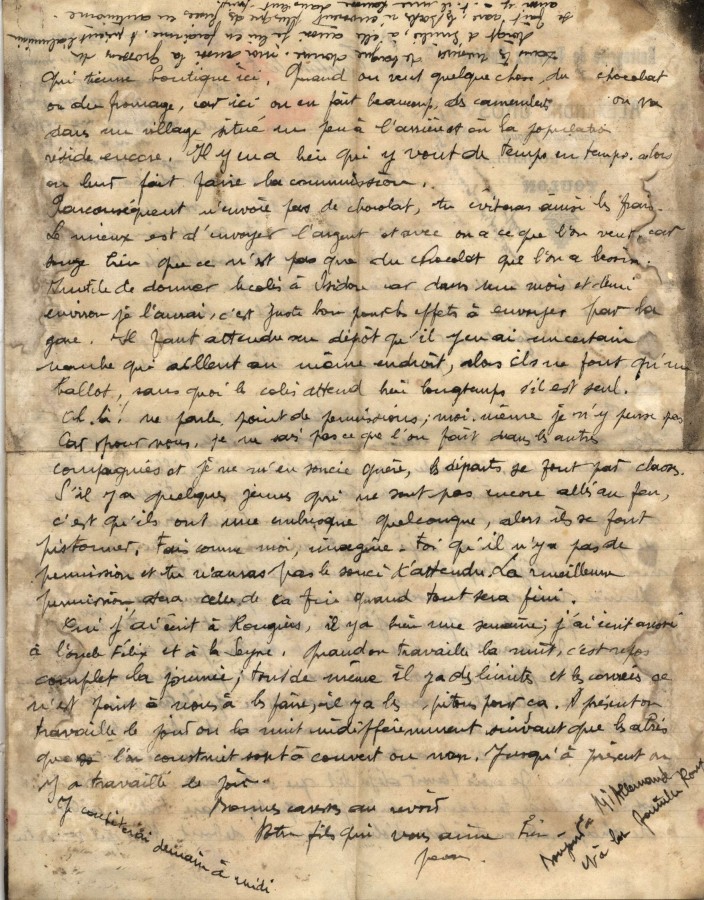 qui tienne boutique ici. Quand on veut quelque chose, du chocolat
ou du fromage, car ici on en fait beaucoup, des camemberts on va
dans un village situé un peu à l'arrière et où la population
réside encore. Il y en a bien qui y vont de temps en temps. alors
on leur fait faire la commission.
Par conséquent n'envoie pas de chocolat, tu éviteras ainsi les frais.
Le mieux est d'envoyer l'argent et avec on a ce que l'on veut, car
songe bien que ce n'est pas que du chocolat que l'on a besoin.
Inutile de donner le colis à Isidore car dans un mois et demi
environ je l'aurai, c'est juste bon pour les effets à envoyer par la
gare. Il faut attendre au dépôt qu'il y en ai un certain
nombre qui aillent au même endroit, alors ils ne font qu'un
ballot, sans quoi le colis attend bien longtemps s'il est seul.
ne parle point de permissions; moi-même je n'y pense pas
Car pour nous, je ne sais pas ce que l'on fait dans les autres
compagnies et je ne m'en soucie guère, les départs se font par classes.
S'il y a quelques jeunes qui ne sont pas encore allés au feu,
c'est qu'ils ont une embusque quelconque, alors ils se font
pistonner. Fais comme moi, imagine-toi qu'il n'y a pas de
permission et tu n'auras pas le souci d'attendre. La meilleure
permission sera celle de la fin quand tout sera fini.
Oui j'ai écrit à Rougiers, il y a bien une semaine; j'ai écrit aussi
à l'oncle Félix et à la Seyne. Quand on travaille la nuit, c'est repos
complet la journée; tout de même il y a des limites et les corvées ce
n'est point à nous à les faire, il y a les pitres pour ça. A présent on
travaille le jour ou la nuit indifféremment suivant que les abris
que l'on construit sont à couvert ou non. Jusqu'à présent on
y a travaillé le jour.
Bonnes caresses au revoir
Votre fils qui vous aime
Jean.
Je continuerai demain à midi
Bonjour à Mr Allemand
et à la famille Roux